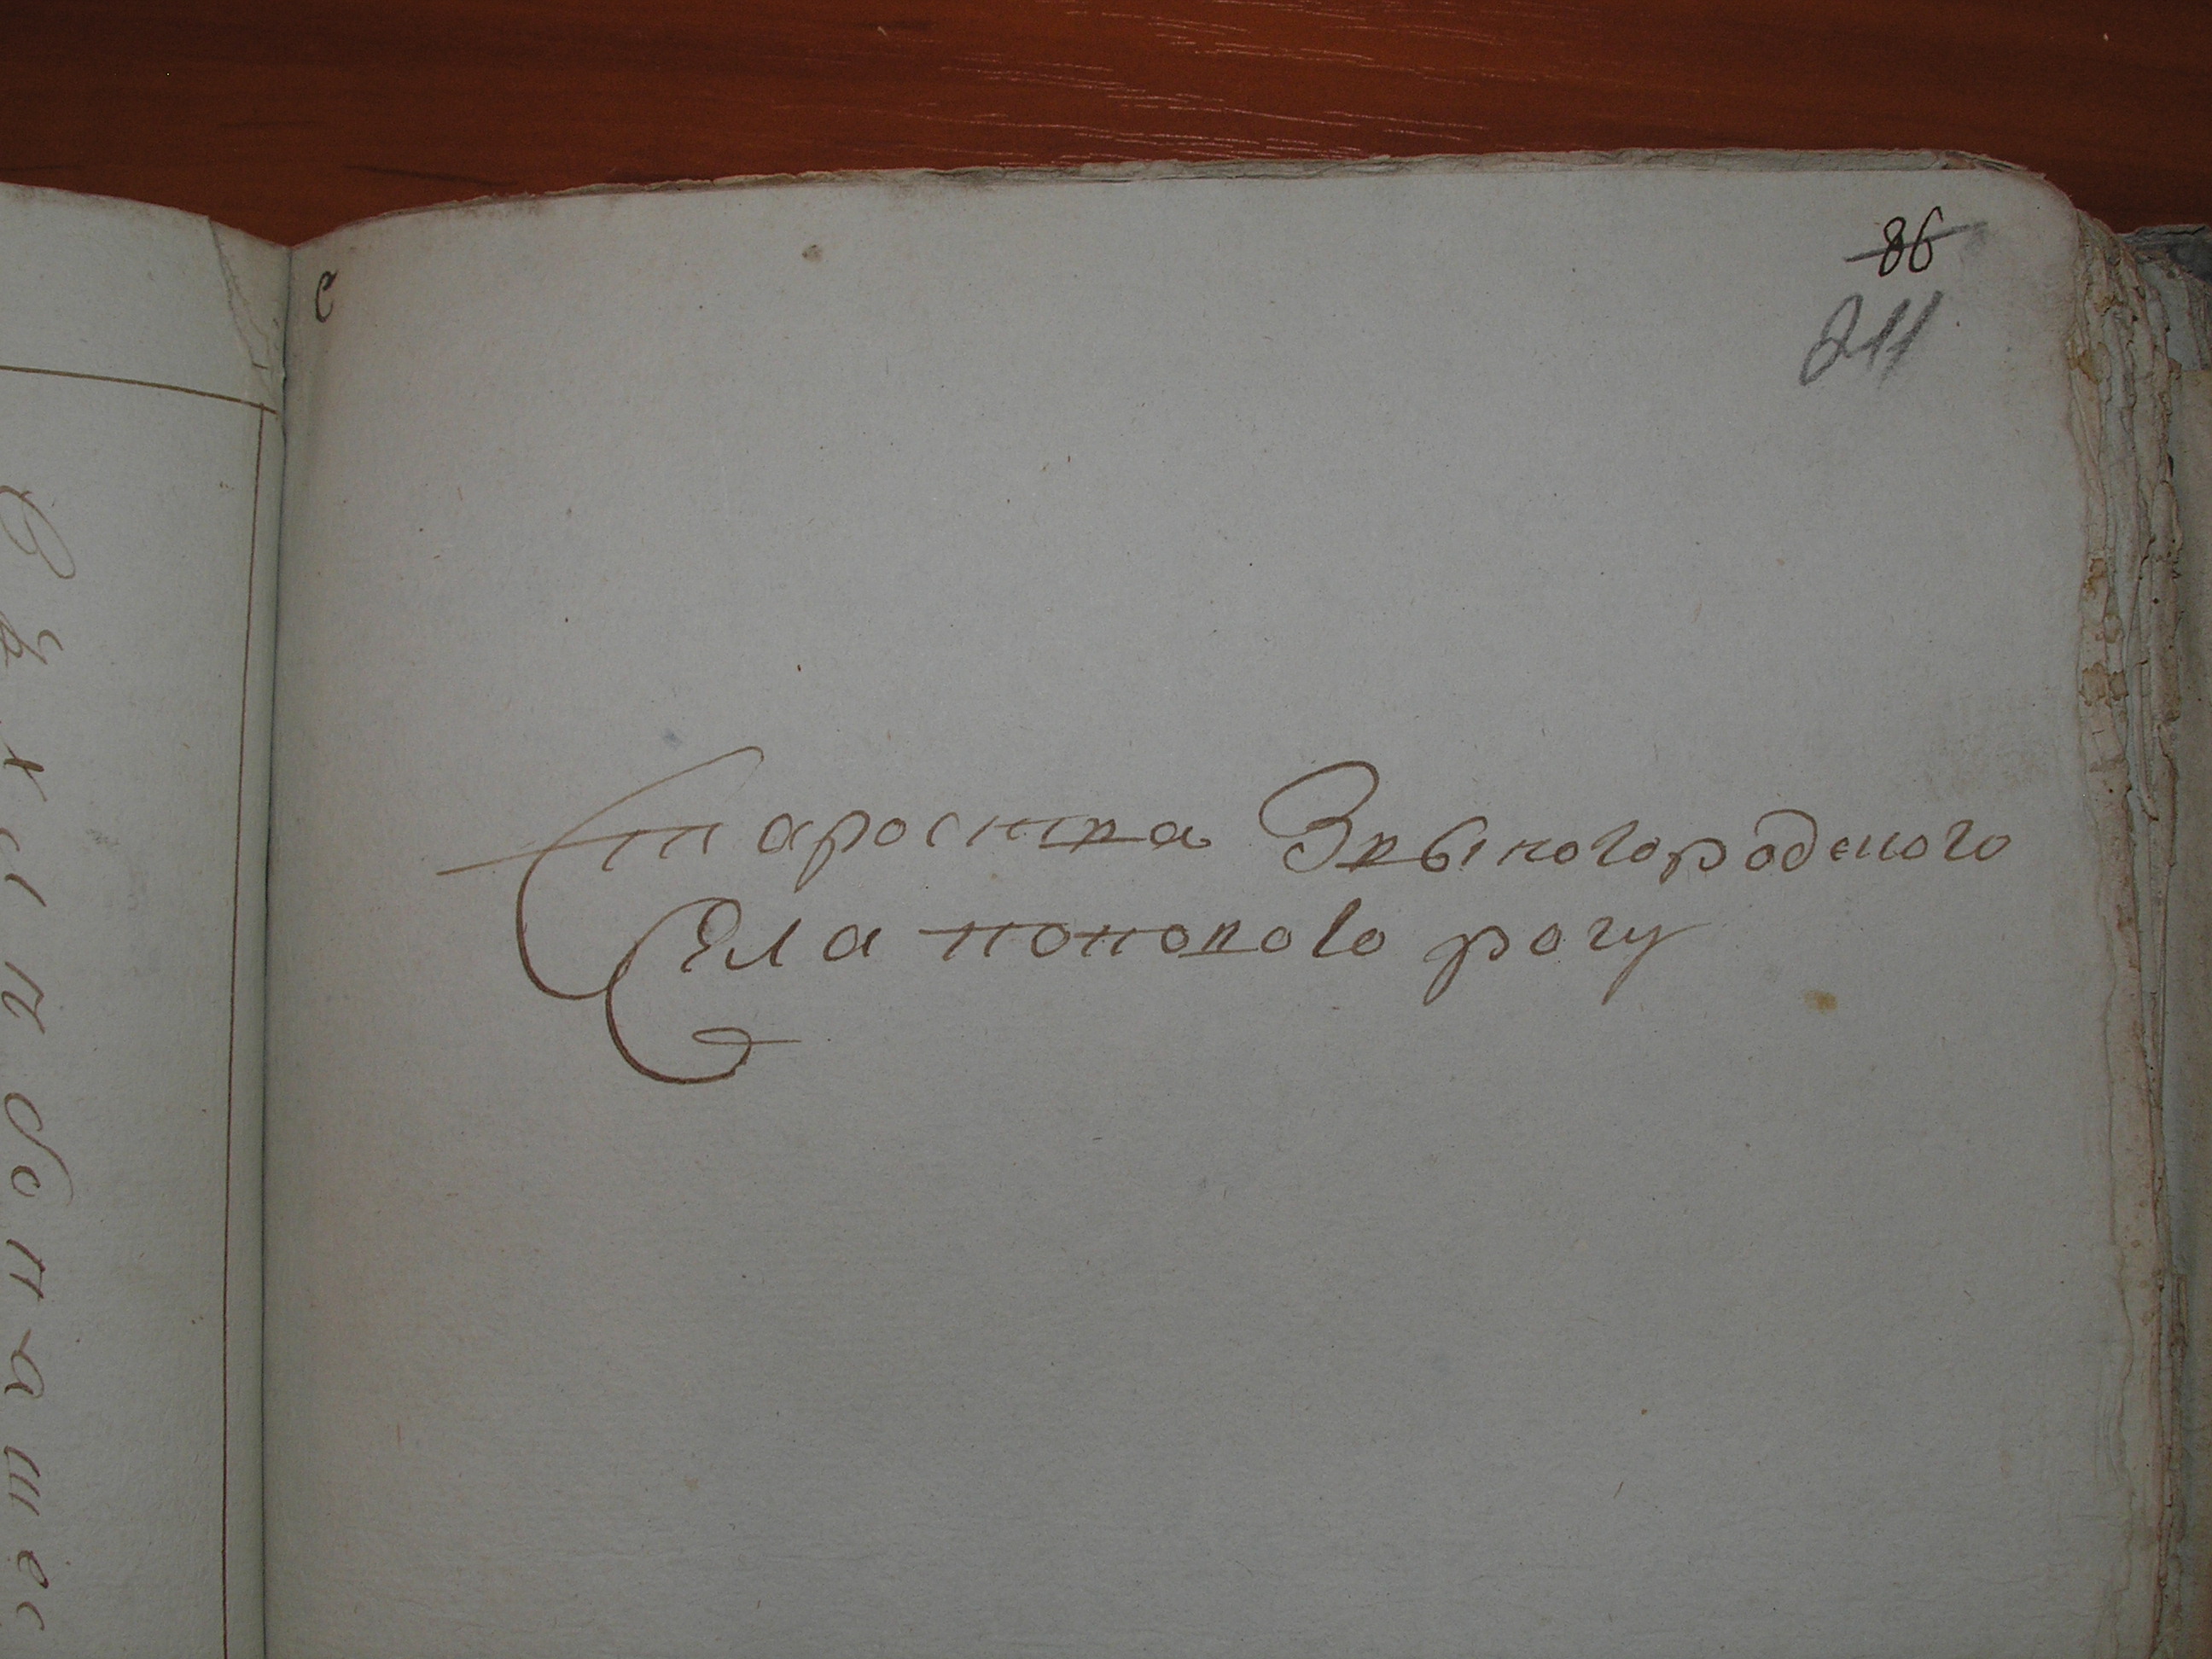 86
211
С
Староства Звыногородского
Села попового рогу